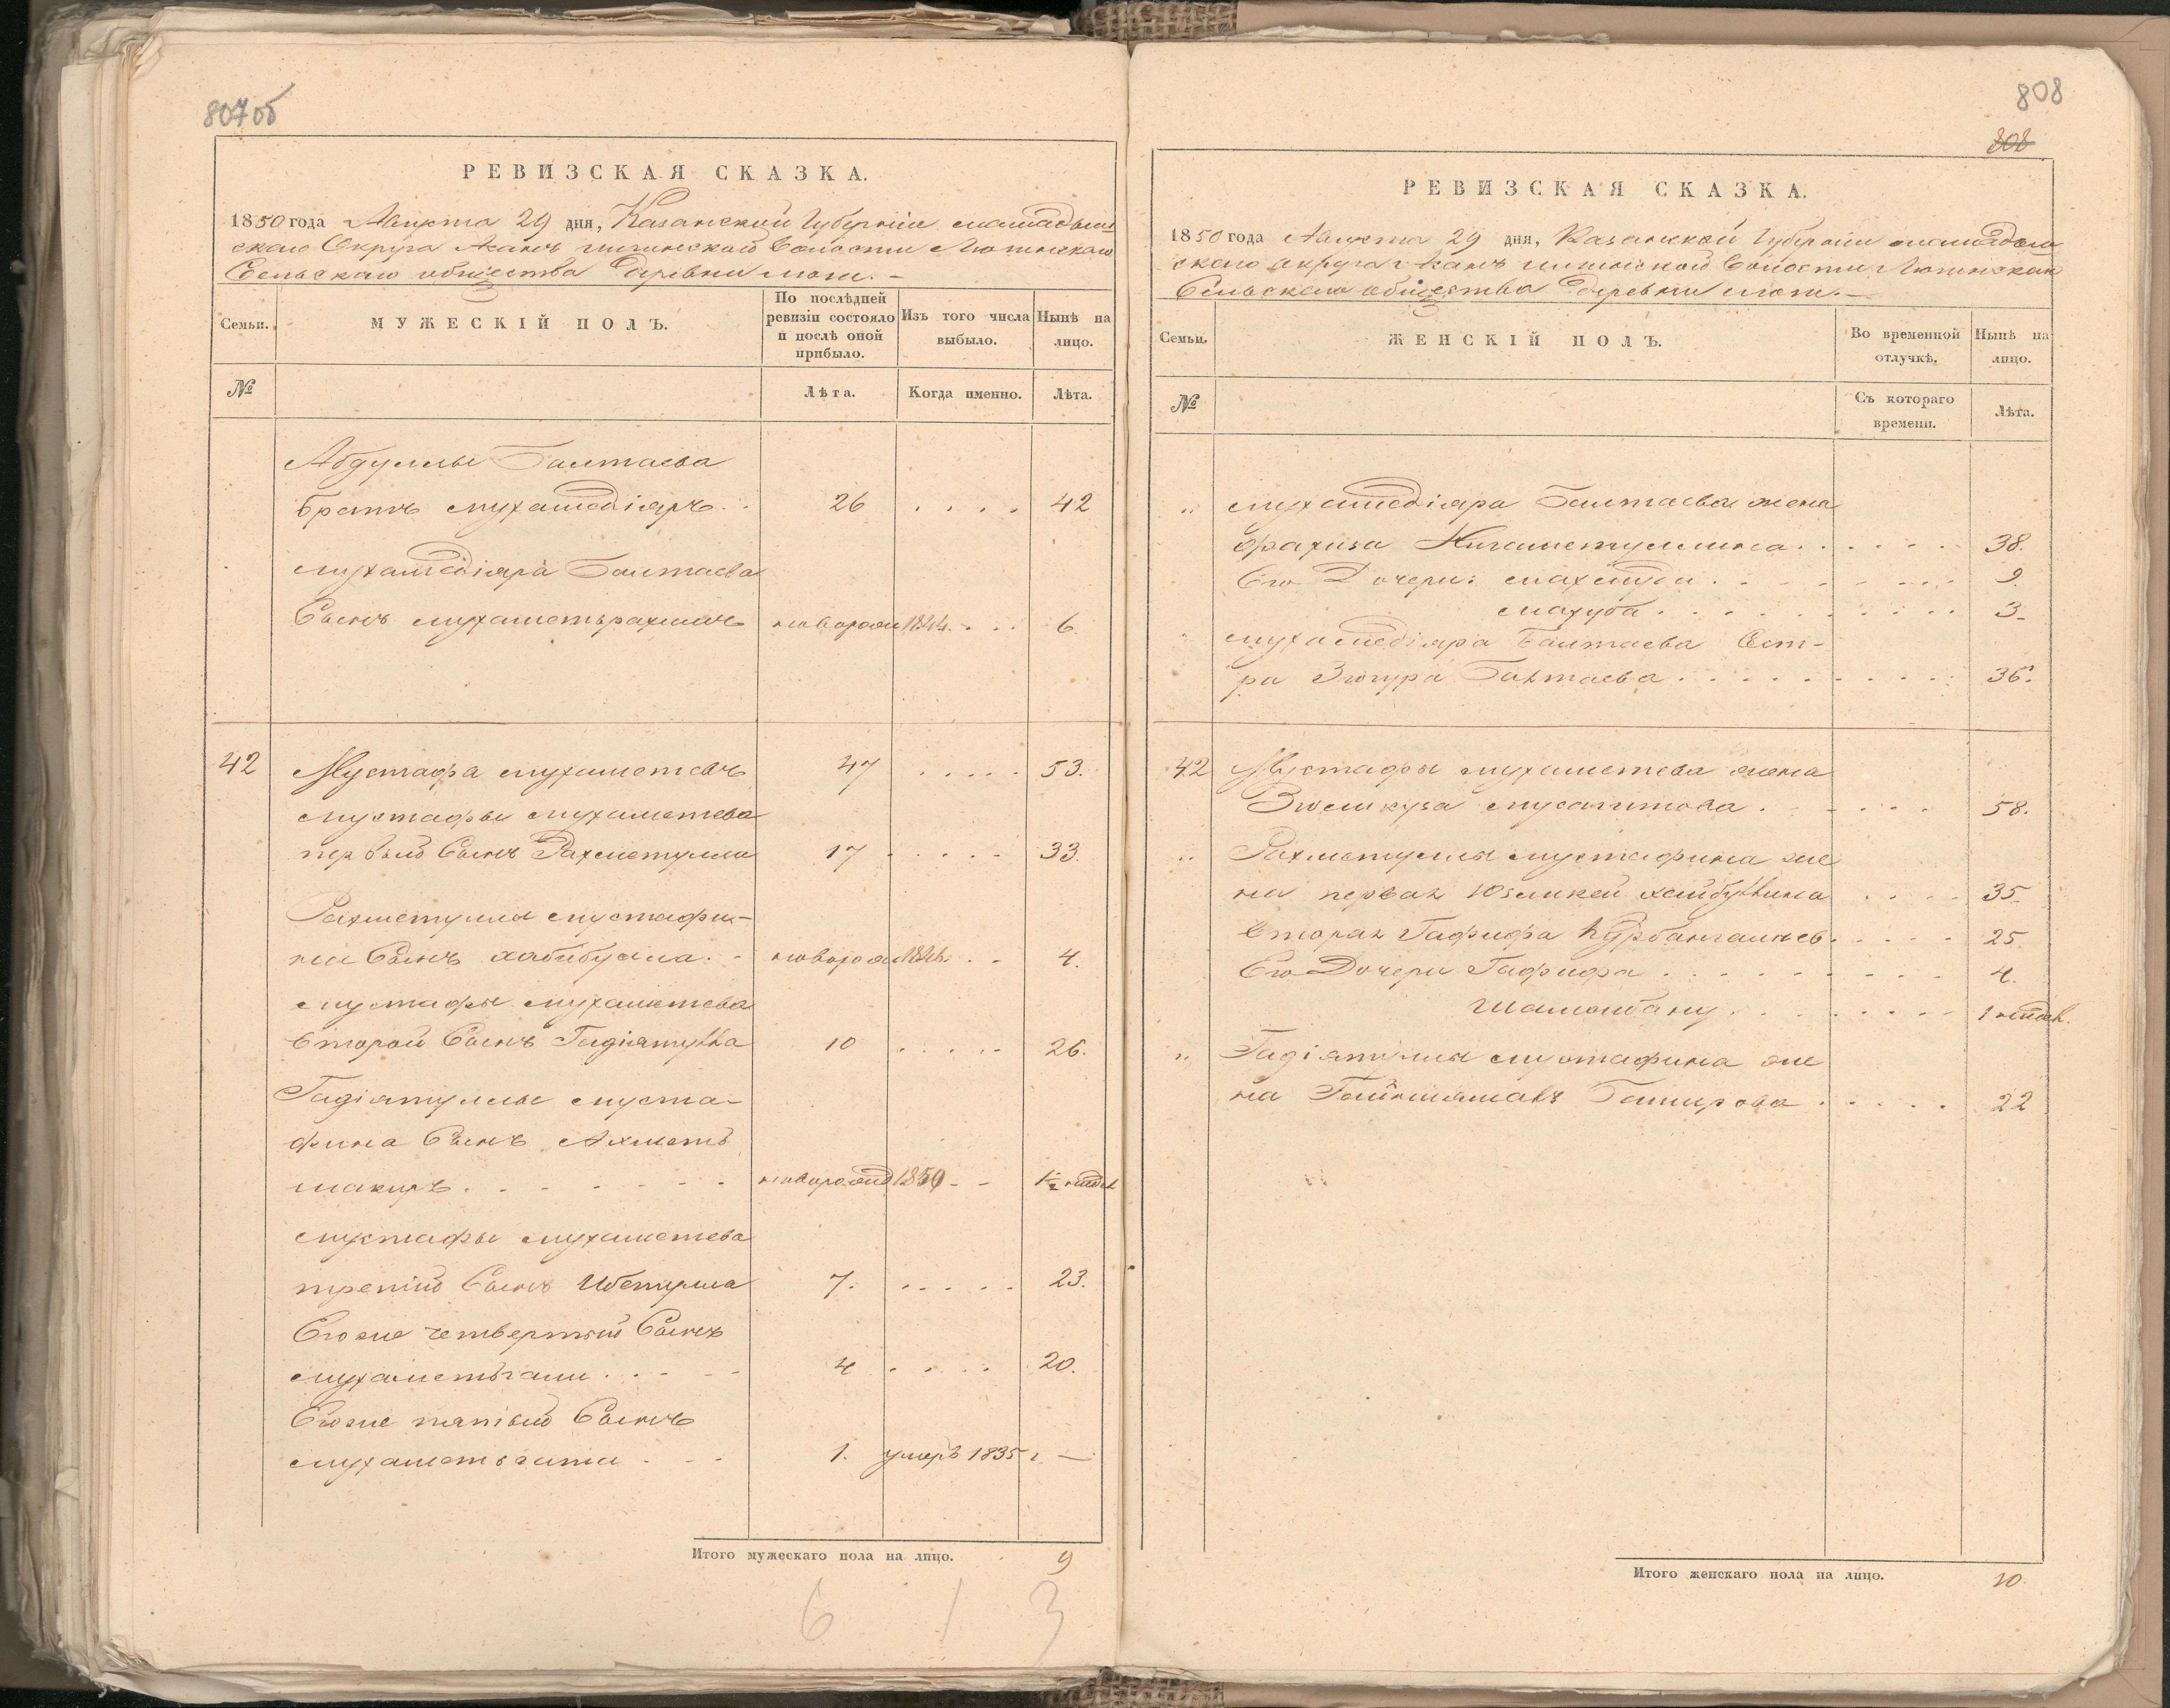 807об
РЕВИЗСКАЯ СКАЗКА.
1850 года Августа 29 дня, Казанской Губерніи мамадыш
скаго Округа
Сельскаго общества Деревни
Семьи.
МУЖЕСКІЙ ПОЛЪ.
По послѣдней ревизіи состояло и послѣ оной прибыло.
Изъ того числа выбыло.
Нынѣ на лицо.
№
Лѣта.
Когда именно.
Лѣта.
Абдуллы Балтаева
братъ мухамедіяръ 26 . . . . 42
мухамедіяра Балтаева
Сынъ мухаметьрахимъ новорож 1844 . . . 6.
42 Мустафа мухаметевъ 47 . . . . . 53.
мустафы мухаметева
первый Сынъ Рахметулла 17 . . . . . 33.
Рахметуллы мустафи-
на Сынъ хабибулла . - новорож 1846 . . - 4.
мустафы мухаметева
второй Сынъ Гидіятулла 10 . . . . . 26.
Гидіятуллы муста-
фина Сынъ Ахметь
шакиръ . . . . . . . новорожд 1850 - - 1½ недѣл
мустафы мухаметева
третій Сынъ Ибетулла 7. . . . . . 23.
Егоже четвертый Сынъ
мухаметьгали . . - - 4 . . . . 20.
Егоже пятый Сынъ
мухаметьгата . - - 1. умеръ 1835 г. —
Итого мужескаго пола на лицо. 9
6 1 3
808
808
РЕВИЗСКАЯ СКАЗКА.
1850 года Августа 29 дня, Казанской Губерніи мамадыш
скаго округа
Сельскаго общества Деревни
Семьи.
ЖЕНСКІЙ ПОЛЪ.
Во временной отлучкѣ.
Нынѣ на лицо.
№
Съ котораго времени.
Лѣта.
„ мухамедіяра Балтаева жена
Фахиза Нигаметуллина . . . . . . 38.
Его Дочери: . . . . . . . . 9.
махуба . . . . . . . . . . 3.
„ мухамедіяра Балтаева Сест-
ра Зюгура Балтаева . . . . . . . . . 36.
42 Мустафы мухаметева жена
мусагитова . . . . . . 58.
„ Рахметуллы мустафина же
на первая хайбуллина . . . . 35.
вторая Гафифа . . . . . 25.
Его Дочери Гафифа . . . . . . . . . 4.
. . . . . . . . 1 недѣл.
„ Гидіятуллы мустафина же
на Баширова . . . . . 22
Итого женскаго пола на лицо. 10